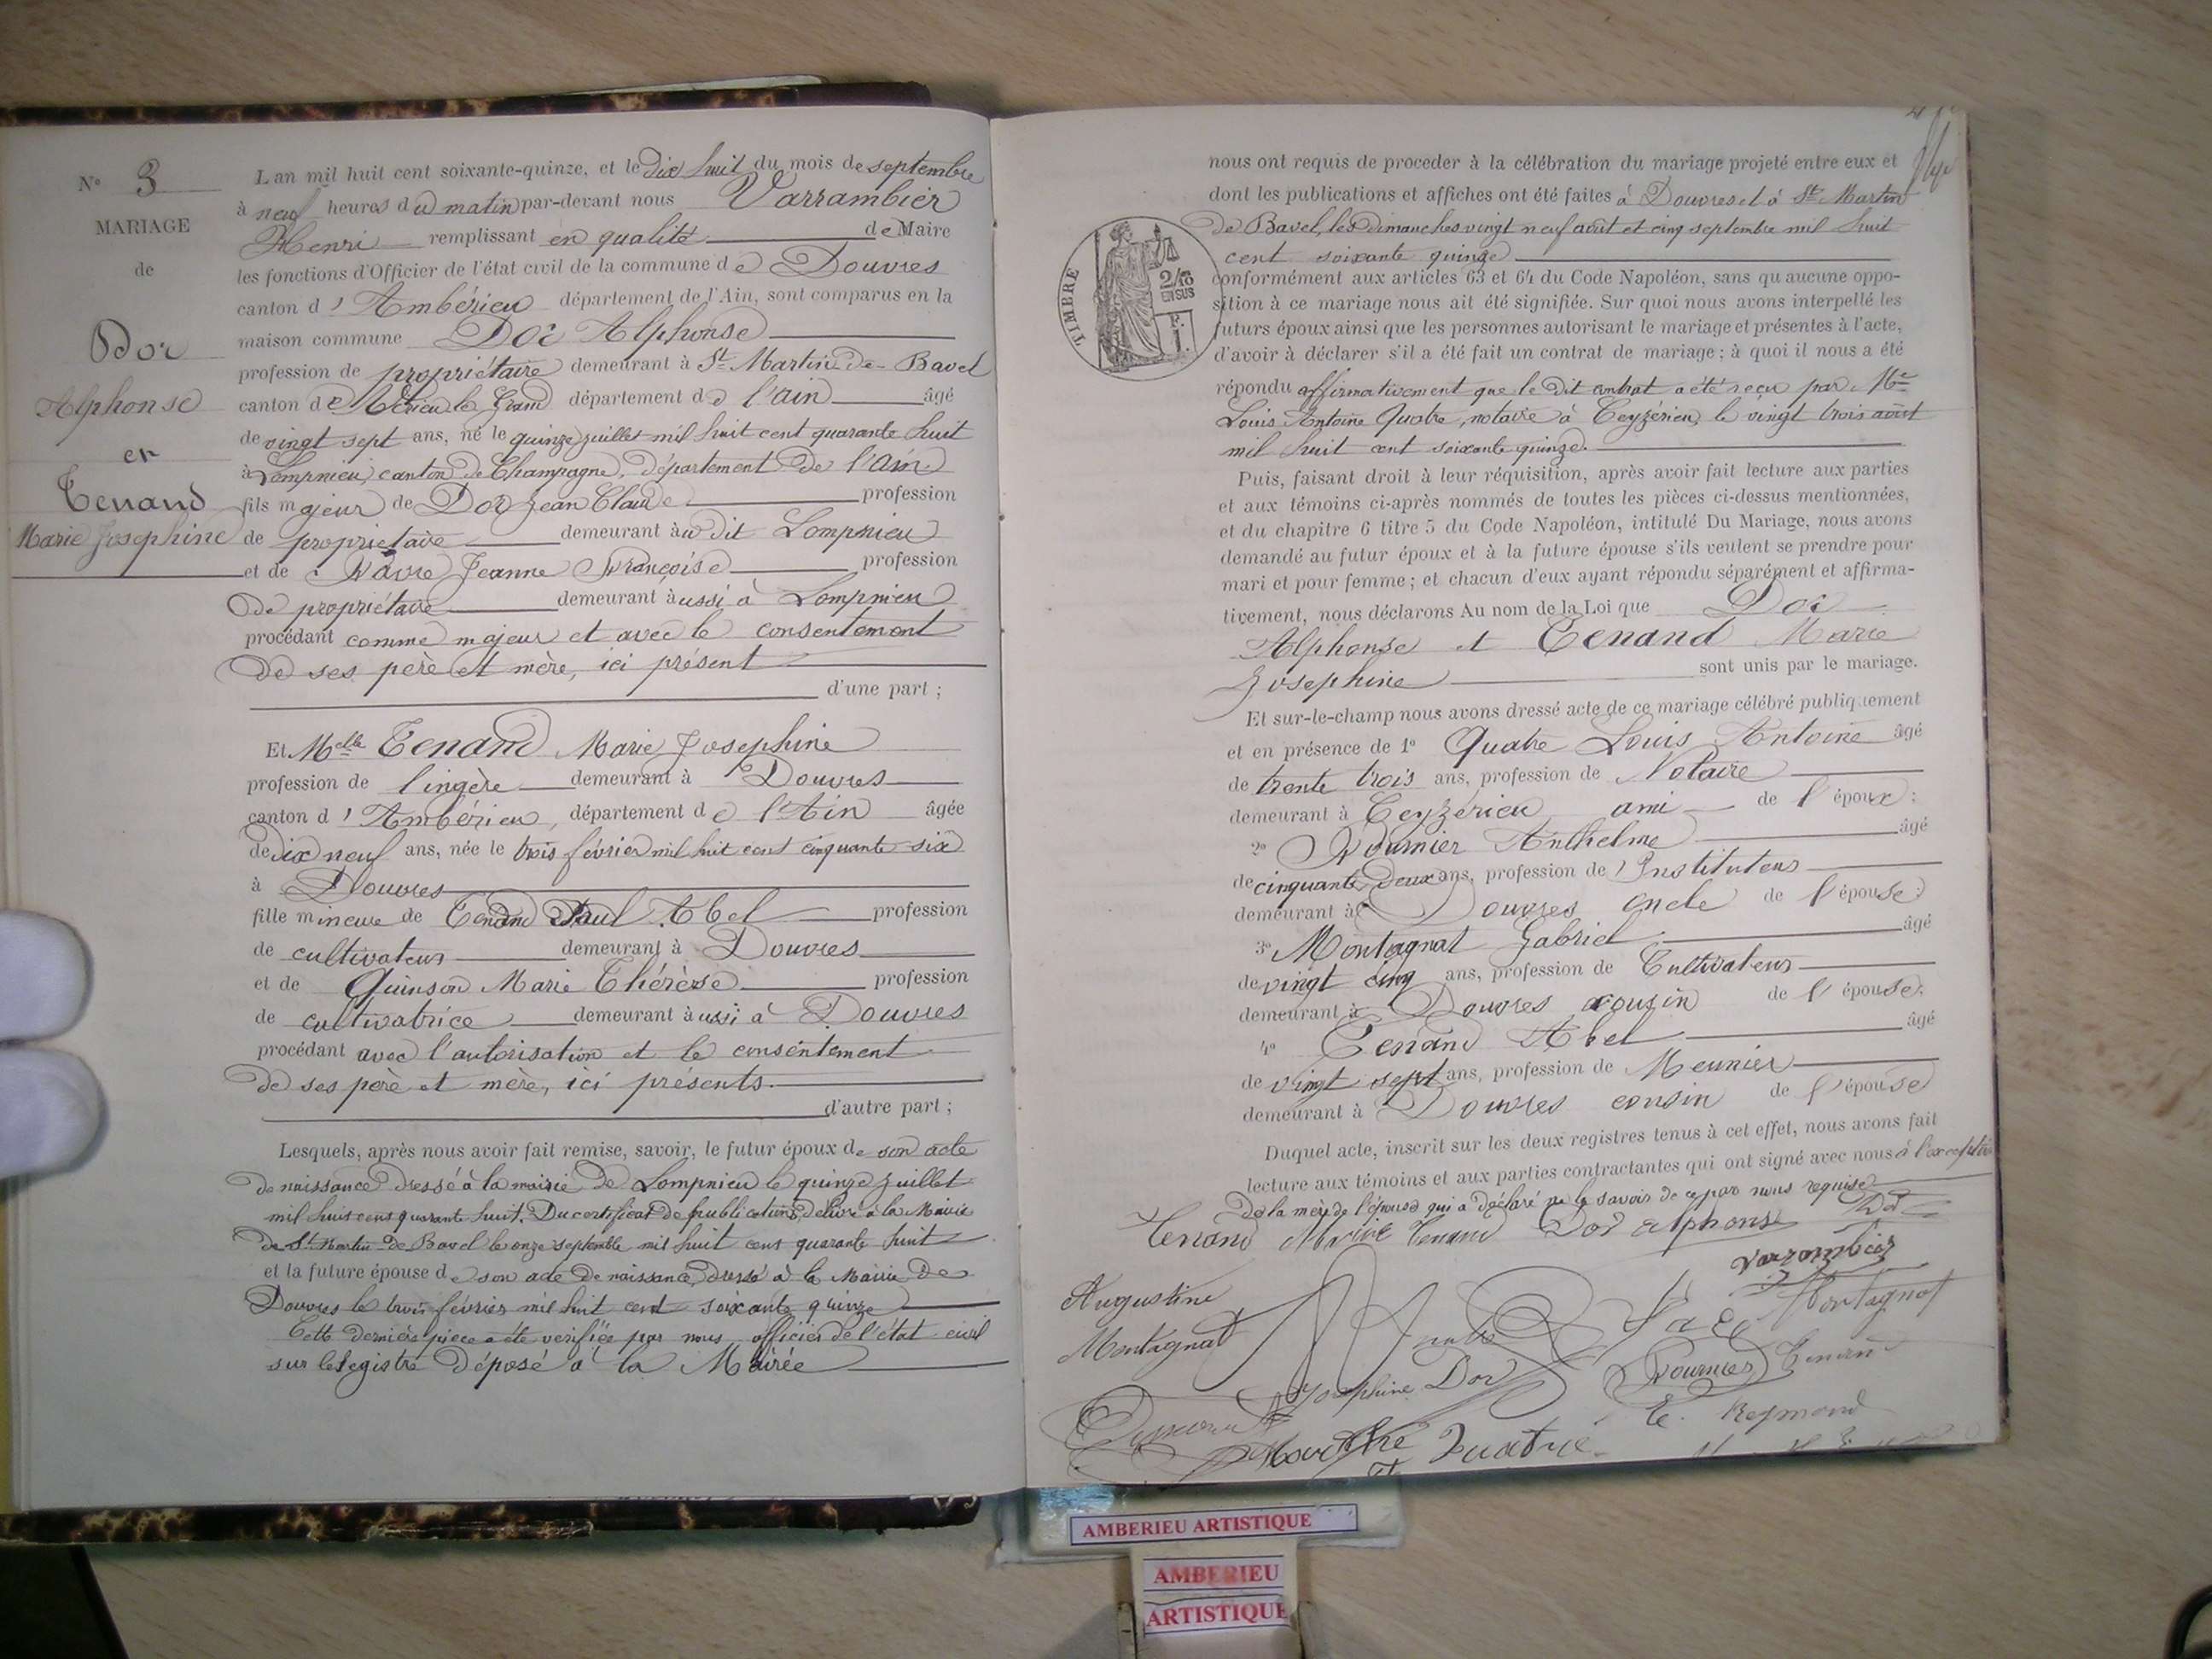 N° 3
MARIAGE
de
Dor
Alphonse
et
Tenand
Marie Josephine
L'an mil huit cent soixante-quinze, et le dix huit du mois de septembre
à neuf heures du matin par-devant nous Varrambier
Henri remplissant en qualité de Maire
les fonctions d'Officier de l'état civil de la commune de Douvres
canton d'Ambérieu département de l'Ain, sont comparus en la
maison commune Dor Alphonse
profession de propriétaire demeurant à St Martin-de-Bavel
canton de Virieu le Grand département de l'ain âgé
de vingt sept ans, né le quinze juillet mil huit cent quarante huit
à Lompnieu, canton de Champagne, département de l'ain
fils majeur de Dor Jean Claude profession
de propriétaire demeurant au dit Lompnieu
et de Favre Jeanne Françoise profession
de propriétaire demeurant aussi à Lompnieu
procédant comme majeur et avec le consentement
de ses père et mère, ici présent
d'une part ;
Et Melle Tenand Marie Josephine
profession de lingère demeurant à Douvres
canton d'Ambérieu, département de l'Ain âgée
de dix neuf ans, née le trois février mil huit cent cinquante six
à Douvres
fille mineure de Tenand Paul Abel profession
de cultivateur demeurant à Douvres
et de Quinson Marie Thérèse profession
de cultivatrice demeurant aussi à Douvres
procédant avec l'autorisation et le consentement
de ses père et mère, ici présents.
d'autre part ;
Lesquels, après nous avoir fait remise, savoir, le futur époux de son acte
de naissance dressé à la mairie de Lompnieu le quinze juillet
mil huit cent quarante huit. Du certificat de publications délivré à la Mairie
de St Martin-de Bavel le onze septembre mil huit cent quarante huit
et la future épouse de son acte de naissance dressé à la Mairie de
Douvres le trois février mil huit cent soixante quinze
Cette dernière pièce a été vérifiée par nous officier de l'état civil
sur le Registre déposé à la Mairie
nous ont requis de proceder à la célébration du mariage projeté entre eux et
dont les publications et affiches ont été faites à Douvres et à St Martin
de Bavel, les dimanches vingt neuf août et cinq septembre mil huit
cent soixante quinze
TIMBRE
2/10
EN SUS
conformément aux articles 63 et 64 du Code Napoléon, sans qu'aucune oppo-
sition à ce mariage nous ait été signifiée. Sur quoi nous avons interpellé les
futurs époux ainsi que les personnes autorisant le mariage et présentes à l'acte,
d'avoir à déclarer s'il a été fait un contrat de mariage ; à quoi il nous a été
répondu affirmativement que le dit contrat a été reçu par Me
Louis Antoine Quatre, notaire à Ceyzérieu, le vingt trois août
mil huit cent soixante quinze.
Puis, faisant droit à leur réquisition, après avoir fait lecture aux parties
et aux témoins ci-après nommés de toutes les pièces ci-dessus mentionnées,
et du chapitre 6 titre 5 du Code Napoléon, intitulé Du Mariage, nous avons
demandé au futur époux et à la future épouse s'ils veulent se prendre pour
mari et pour femme ; et chacun d'eux ayant répondu séparément et affirma-
tivement, nous déclarons Au nom de la Loi que Dor
Alphonse et Tenand Marie
Josephine sont unis par le mariage.
Et sur-le-champ nous avons dressé acte de ce mariage célébré publiquement
et en présence de 1° Quatre Louis Antoine âgé
de trente trois ans, profession de Notaire
demeurant à Ceyzérieu ami de l'époux ;
2° Fournier Anthelme âgé
de cinquante deux ans, profession de Instituteur
demeurant à Douvres oncle de l'épouse ;
3° Montagnat Gabriel âgé
de vingt cinq ans, profession de Cultivateur
demeurant à Douvres cousin de l'épouse ;
4° Tenand Abel âgé
de vingt sept ans, profession de Meunier
demeurant à Douvres cousin de l'épouse
Duquel acte, inscrit sur les deux registres tenus à cet effet, nous avons fait
lecture aux témoins et aux parties contractantes qui ont signé avec nous à l'exception
de la mère de l'épouse qui a déclaré ne le savoir de ce par nous requise
Tenand Marie Tenand Dor alphonse Dor
Varrambier
Augustine Montagnat
Montagnat Quatre
Josephine Dor Fournier Tenand
E. Reymond
Marthe Quatre
AMBERIEU ARTISTIQUE
AMBERIEU
ARTISTIQUE